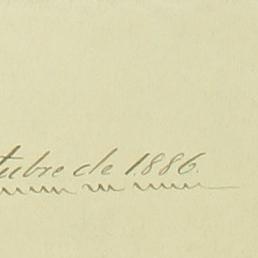 tubre de 1886.